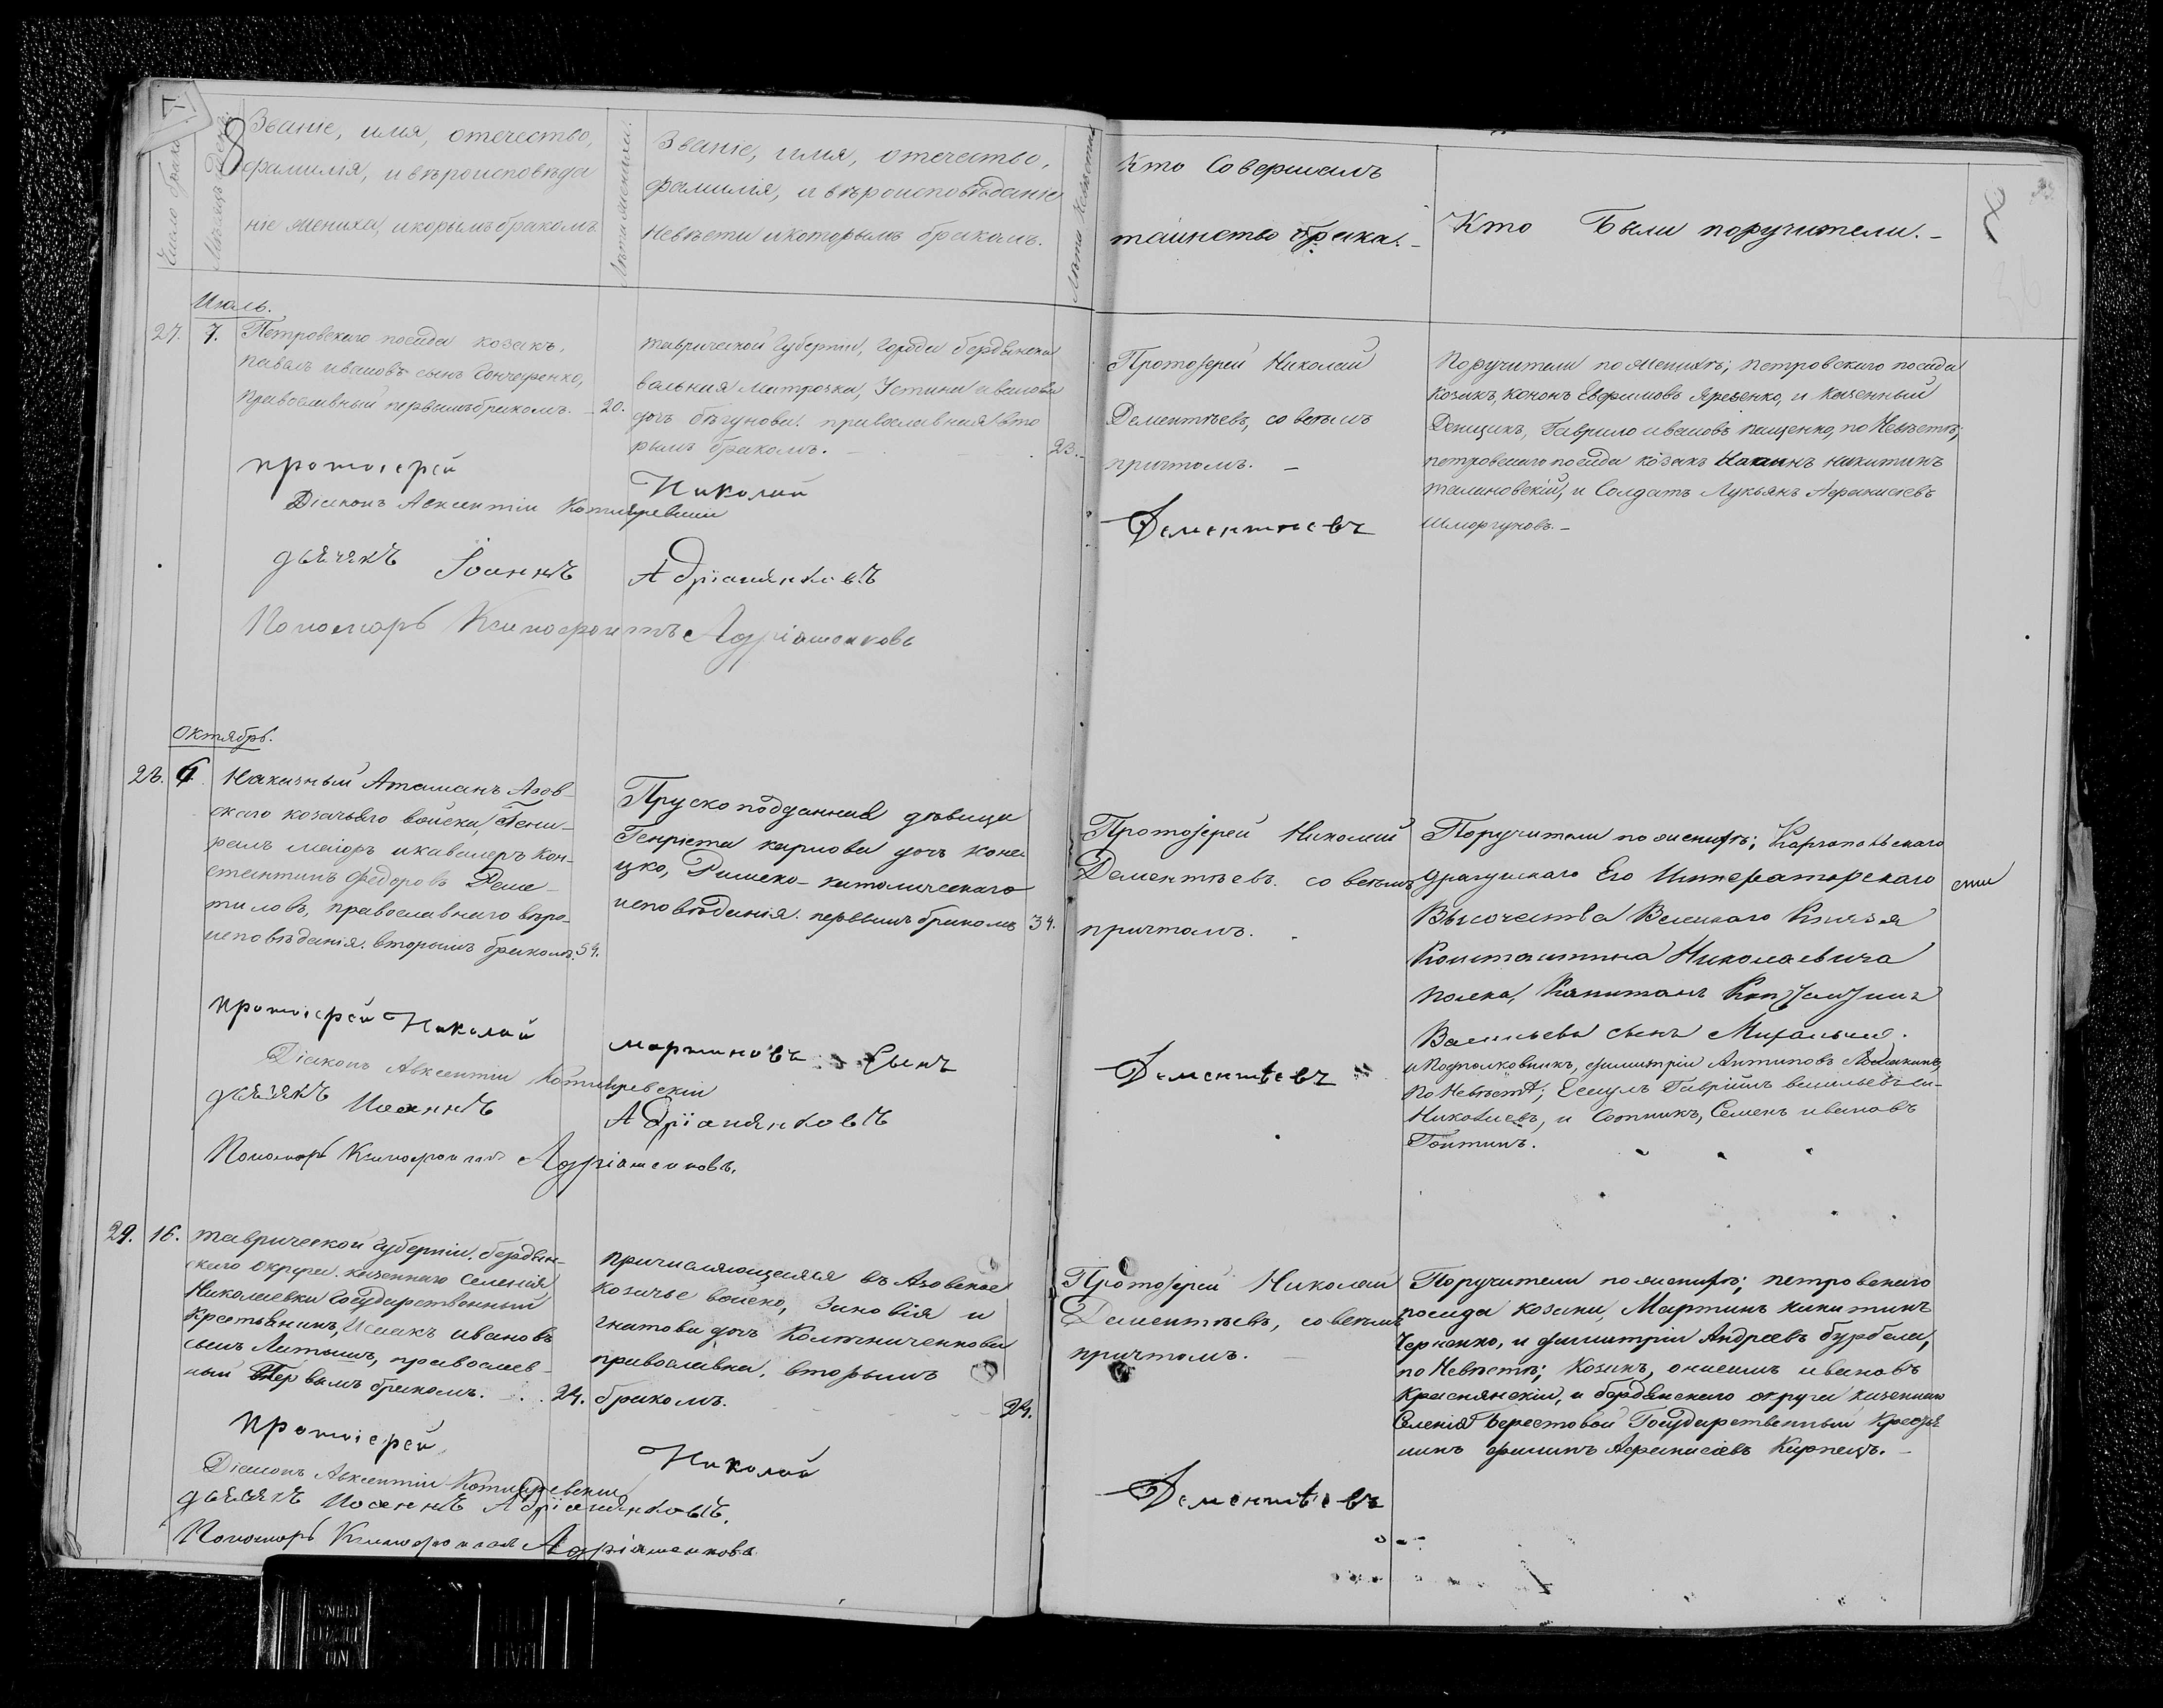 Число брака.
Мѣсяцъ День.
8
Званіе, имя, отечество,
фамилія, и вѣроисповѣда
ніе жениха, и корымъ бракомъ.
Лѣта жениха.
Званіе, имя, отечество,
фамилія, и вѣроисповѣданіе
невѣсти и которымъ бракомъ.
Лѣта Невѣсти
Кто Совершалъ
таинство брака.
Кто Были поручители.
Июль.
27. 7. Петровскаго посада козакъ,
павелъ ивановъ сынъ Гончаренко,
православный первымъ бракомъ. 20.
таврической губерніи, города бердянска
вольная матрозка, Устина иванова
дочъ бѣгунова. православная вто
рымъ бракомъ. 23.
Протоіерей Николай
Дементѣевъ, со всѣмъ
причтомъ.
Поручители по женихѣ; петровскаго посада
козакъ, кононъ Евфимовъ Яременко, и казенный
Денщикъ, Гаврило ивановъ пащенко, по Невѣстѣ;
петровскаго посада козакъ никитинъ
талиновскій, и Солдатъ Лукьянъ Афанасіевъ
шморгуновъ.
протоіерей Николай Дементѣевъ
Діаконъ Авксентій Котляревскій
дьячекъ Іоаннъ Адріановъ
Пономарь Ксинофонтъ Адріяшенковъ
Октябрь.
28. 6. Наказный Атаманъ Азов-
скаго козачьяго войска, Гене-
ралъ маіоръ и кавалеръ Кон-
стантинъ Федоровъ
православнаго вѣро-
исповѣданія. вторымъ бракомъ. 54.
Пруско подданная дѣвица
Генріета карлова дочъ коне
цко, Римско-католическаго
исповѣданія. первымъ бракомъ 34.
Протоіерей Николай
Дементѣевъ. со всѣмъ
причтомъ.
Поручители по женихѣ; Каргопольскаго
драгунскаго Его Императорскаго
Высочества Великаго Князя
Константина Николаевича
полка, Капитанъ
Васильевъ сынъ
и Подполковникъ, димитрій Антиповъ
По Невѣстѣ; Есаулъ Гавріилъ васильевъ
и Сотникъ, Семенъ ивановъ
протоіерей Николай мартиновъ сынъ Дементьевъ
Діаконъ Авксентій Котляревскій
дьячекъ Иоаннъ Адріановъ
Пономарь Ксинофонтъ Адріяшенковъ.
29. 16. таврической губерніи. бердян-
скаго округа. казеннаго селенія,
Николаевки Государственный
Крестьянинъ, Исаакъ ивановъ
сынъ Латышъ, православ-
ный Первымъ бракомъ. 24.
причисляющаяся въ Азовское
козачье войско, Зиновія и
гнатова дочъ Колѣниченкова
православна, вторымъ
бракомъ. 24.
Протоіерей Николай
Дементѣевъ, со всѣмъ
причтомъ.
Поручители по женихѣ; петровскаго
посада козаки, Мартинъ никитинъ
Черненко, и димитрій Андреевъ бурбела,
по Невѣстѣ; Козакъ, онисимъ ивановъ
Краснянскій, и бердянскаго округа казеннаго
Селенія берестовой Государственный Крестья
нинъ филипъ Афанасіевъ Карпецъ.
протоіерей Николай Дементьевъ
Діаконъ Авксентій Котляревскій
дьячекъ Иоаннъ Адріановъ.
Пономарь Ксинофонтъ Адріяшенковъ